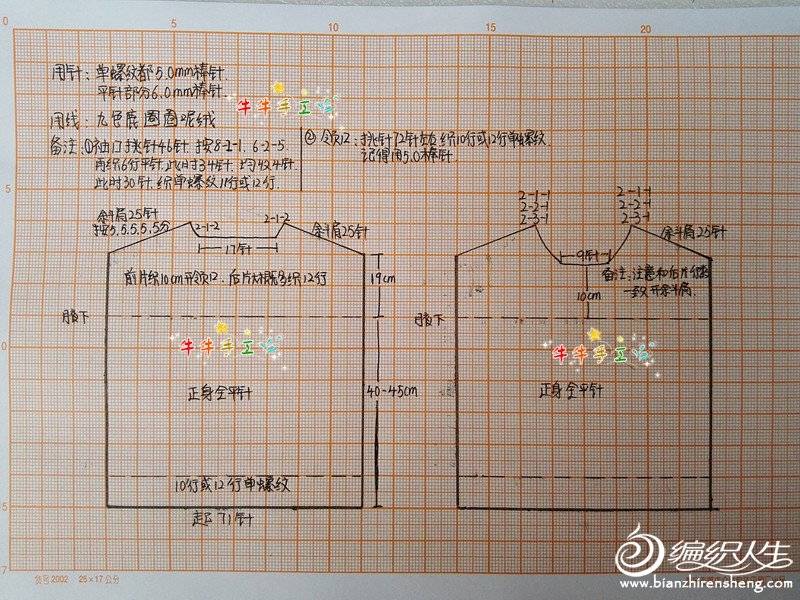 用针：单螺纹都5.0mm棒针.
平针部分6.0mm棒针.
牛牛手工坊
用线：九色鹿圈圈呢绒
备注：①袖口挑针46针. 按8-2-1. 6-2-5.
再织6行平针.此时34针. 均收4针.
此时30针.织单螺纹11行或12行.
②领口:挑针72针左右 织10行或12行单螺纹
记得用5.0棒针.
斜肩25针
按5,5,5,5,5分
2-1-2
2-1-2
斜肩25针
17针
前片织10cm开领口. 后片大概多织12行
19cm
腋下
牛牛手工坊
正身全平针
40-45cm
10行或12行单螺纹
起71针
2-1-1
2-2-1
2-3-1
2-1-1
2-2-1
2-3-1
斜肩25针
9针
10cm
备注:注意和后片
一致开斜肩.
腋下
牛牛手工坊
正身全平针
0
5
10
15
20
5
0
5
7
货号2002 25×17公分
编织人生
www.bianzhirensheng.com